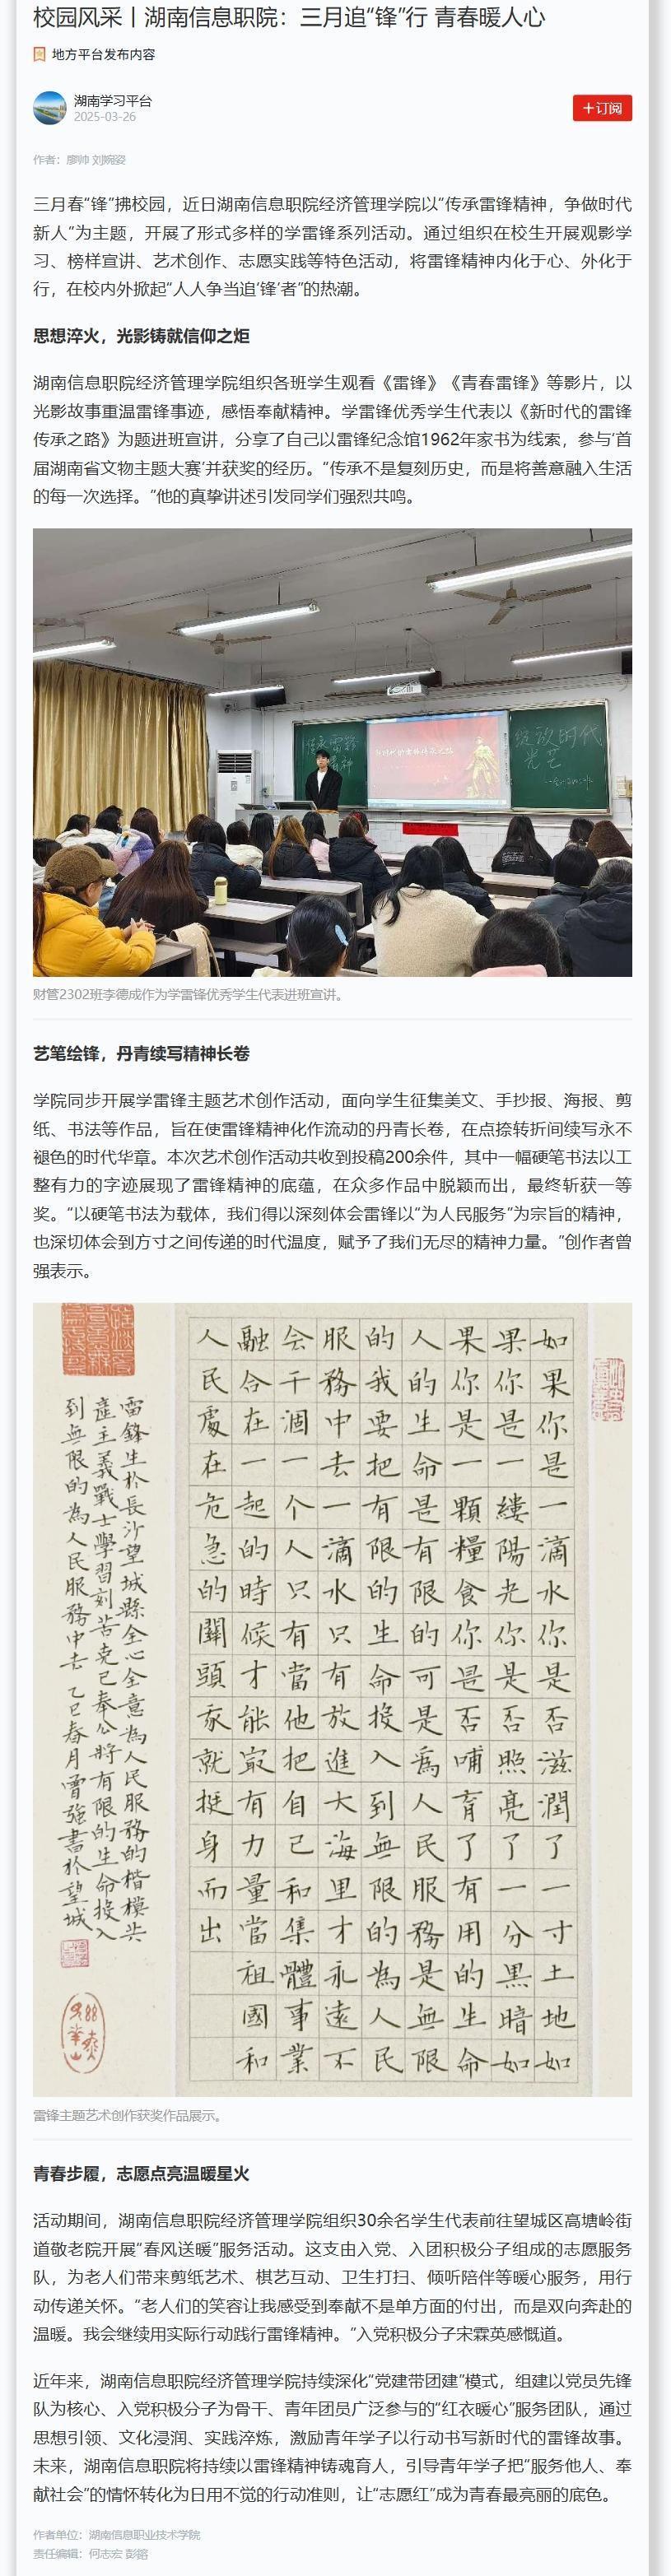 校园风采丨湖南信息职院：三月追“锋”行 青春暖人心
地方平台发布内容
湖南学习平台
2025-03-26
＋订阅
作者：廖帅 刘婉姿
三月春“锋”拂校园，近日湖南信息职院经济管理学院以“传承雷锋精神，争做时代
新人”为主题，开展了形式多样的学雷锋系列活动。通过组织在校生开展观影学
习、榜样宣讲、艺术创作、志愿实践等特色活动，将雷锋精神内化于心、外化于
行，在校内外掀起“人人争当追‘锋’者”的热潮。
思想淬火，光影铸就信仰之炬
湖南信息职院经济管理学院组织各班学生观看《雷锋》《青春雷锋》等影片，以
光影故事重温雷锋事迹，感悟奉献精神。学雷锋优秀学生代表以《新时代的雷锋
传承之路》为题进班宣讲，分享了自己以雷锋纪念馆1962年家书为线索，参与‘首
届湖南省文物主题大赛’并获奖的经历。“传承不是复刻历史，而是将善意融入生活
的每一次选择。”他的真挚讲述引发同学们强烈共鸣。
新时代的雷锋传承之路
绽放时代
光芒
财管2302班李德成作为学雷锋优秀学生代表进班宣讲。
艺笔绘锋，丹青续写精神长卷
学院同步开展学雷锋主题艺术创作活动，面向学生征集美文、手抄报、海报、剪
纸、书法等作品，旨在使雷锋精神化作流动的丹青长卷，在点捺转折间续写永不
褪色的时代华章。本次艺术创作活动共收到投稿200余件，其中一幅硬笔书法以工
整有力的字迹展现了雷锋精神的底蕴，在众多作品中脱颖而出，最终斩获一等
奖。“以硬笔书法为载体，我们得以深刻体会雷锋以“为人民服务”为宗旨的精神，
也深切体会到方寸之间传递的时代温度，赋予了我们无尽的精神力量。”创作者曾
强表示。
如果你是一滴水你是否滋潤了一寸土地如
果你是一縷陽光你是否照亮了一分黑暗如
果你是一顆糧食你是否哺育了有用的生命
人的生命是有限的可是爲人民服務是無限
的我要把有限的生命投入到無限的為人民
服務中去一滴水只有放進大海里才永遠不
会干涸一个人只有當他把自己和集體事業
融合在一起的時候才能最有力量當祖國和
人民處在危急的關頭我就挺身而出
雷鋒生於長沙望城縣全心全意為人民服務的楷模共
產主義戰士學習刻苦克己奉公將有限的生命投入
到無限的為人民服務中去 乙巳春月曾強書於望城
雷锋主题艺术创作获奖作品展示。
青春步履，志愿点亮温暖星火
活动期间，湖南信息职院经济管理学院组织30余名学生代表前往望城区高塘岭街
道敬老院开展“春风送暖”服务活动。这支由入党、入团积极分子组成的志愿服务
队，为老人们带来剪纸艺术、棋艺互动、卫生打扫、倾听陪伴等暖心服务，用行
动传递关怀。“老人们的笑容让我感受到奉献不是单方面的付出，而是双向奔赴的
温暖。我会继续用实际行动践行雷锋精神。”入党积极分子宋霖英感慨道。
近年来，湖南信息职院经济管理学院持续深化“党建带团建”模式，组建以党员先锋
队为核心、入党积极分子为骨干、青年团员广泛参与的“红衣暖心”服务团队，通过
思想引领、文化浸润、实践淬炼，激励青年学子以行动书写新时代的雷锋故事。
未来，湖南信息职院将持续以雷锋精神铸魂育人，引导青年学子把“服务他人、奉
献社会”的情怀转化为日用不觉的行动准则，让“志愿红”成为青春最亮丽的底色。
作者单位：湖南信息职业技术学院
责任编辑：何志宏 彭镕